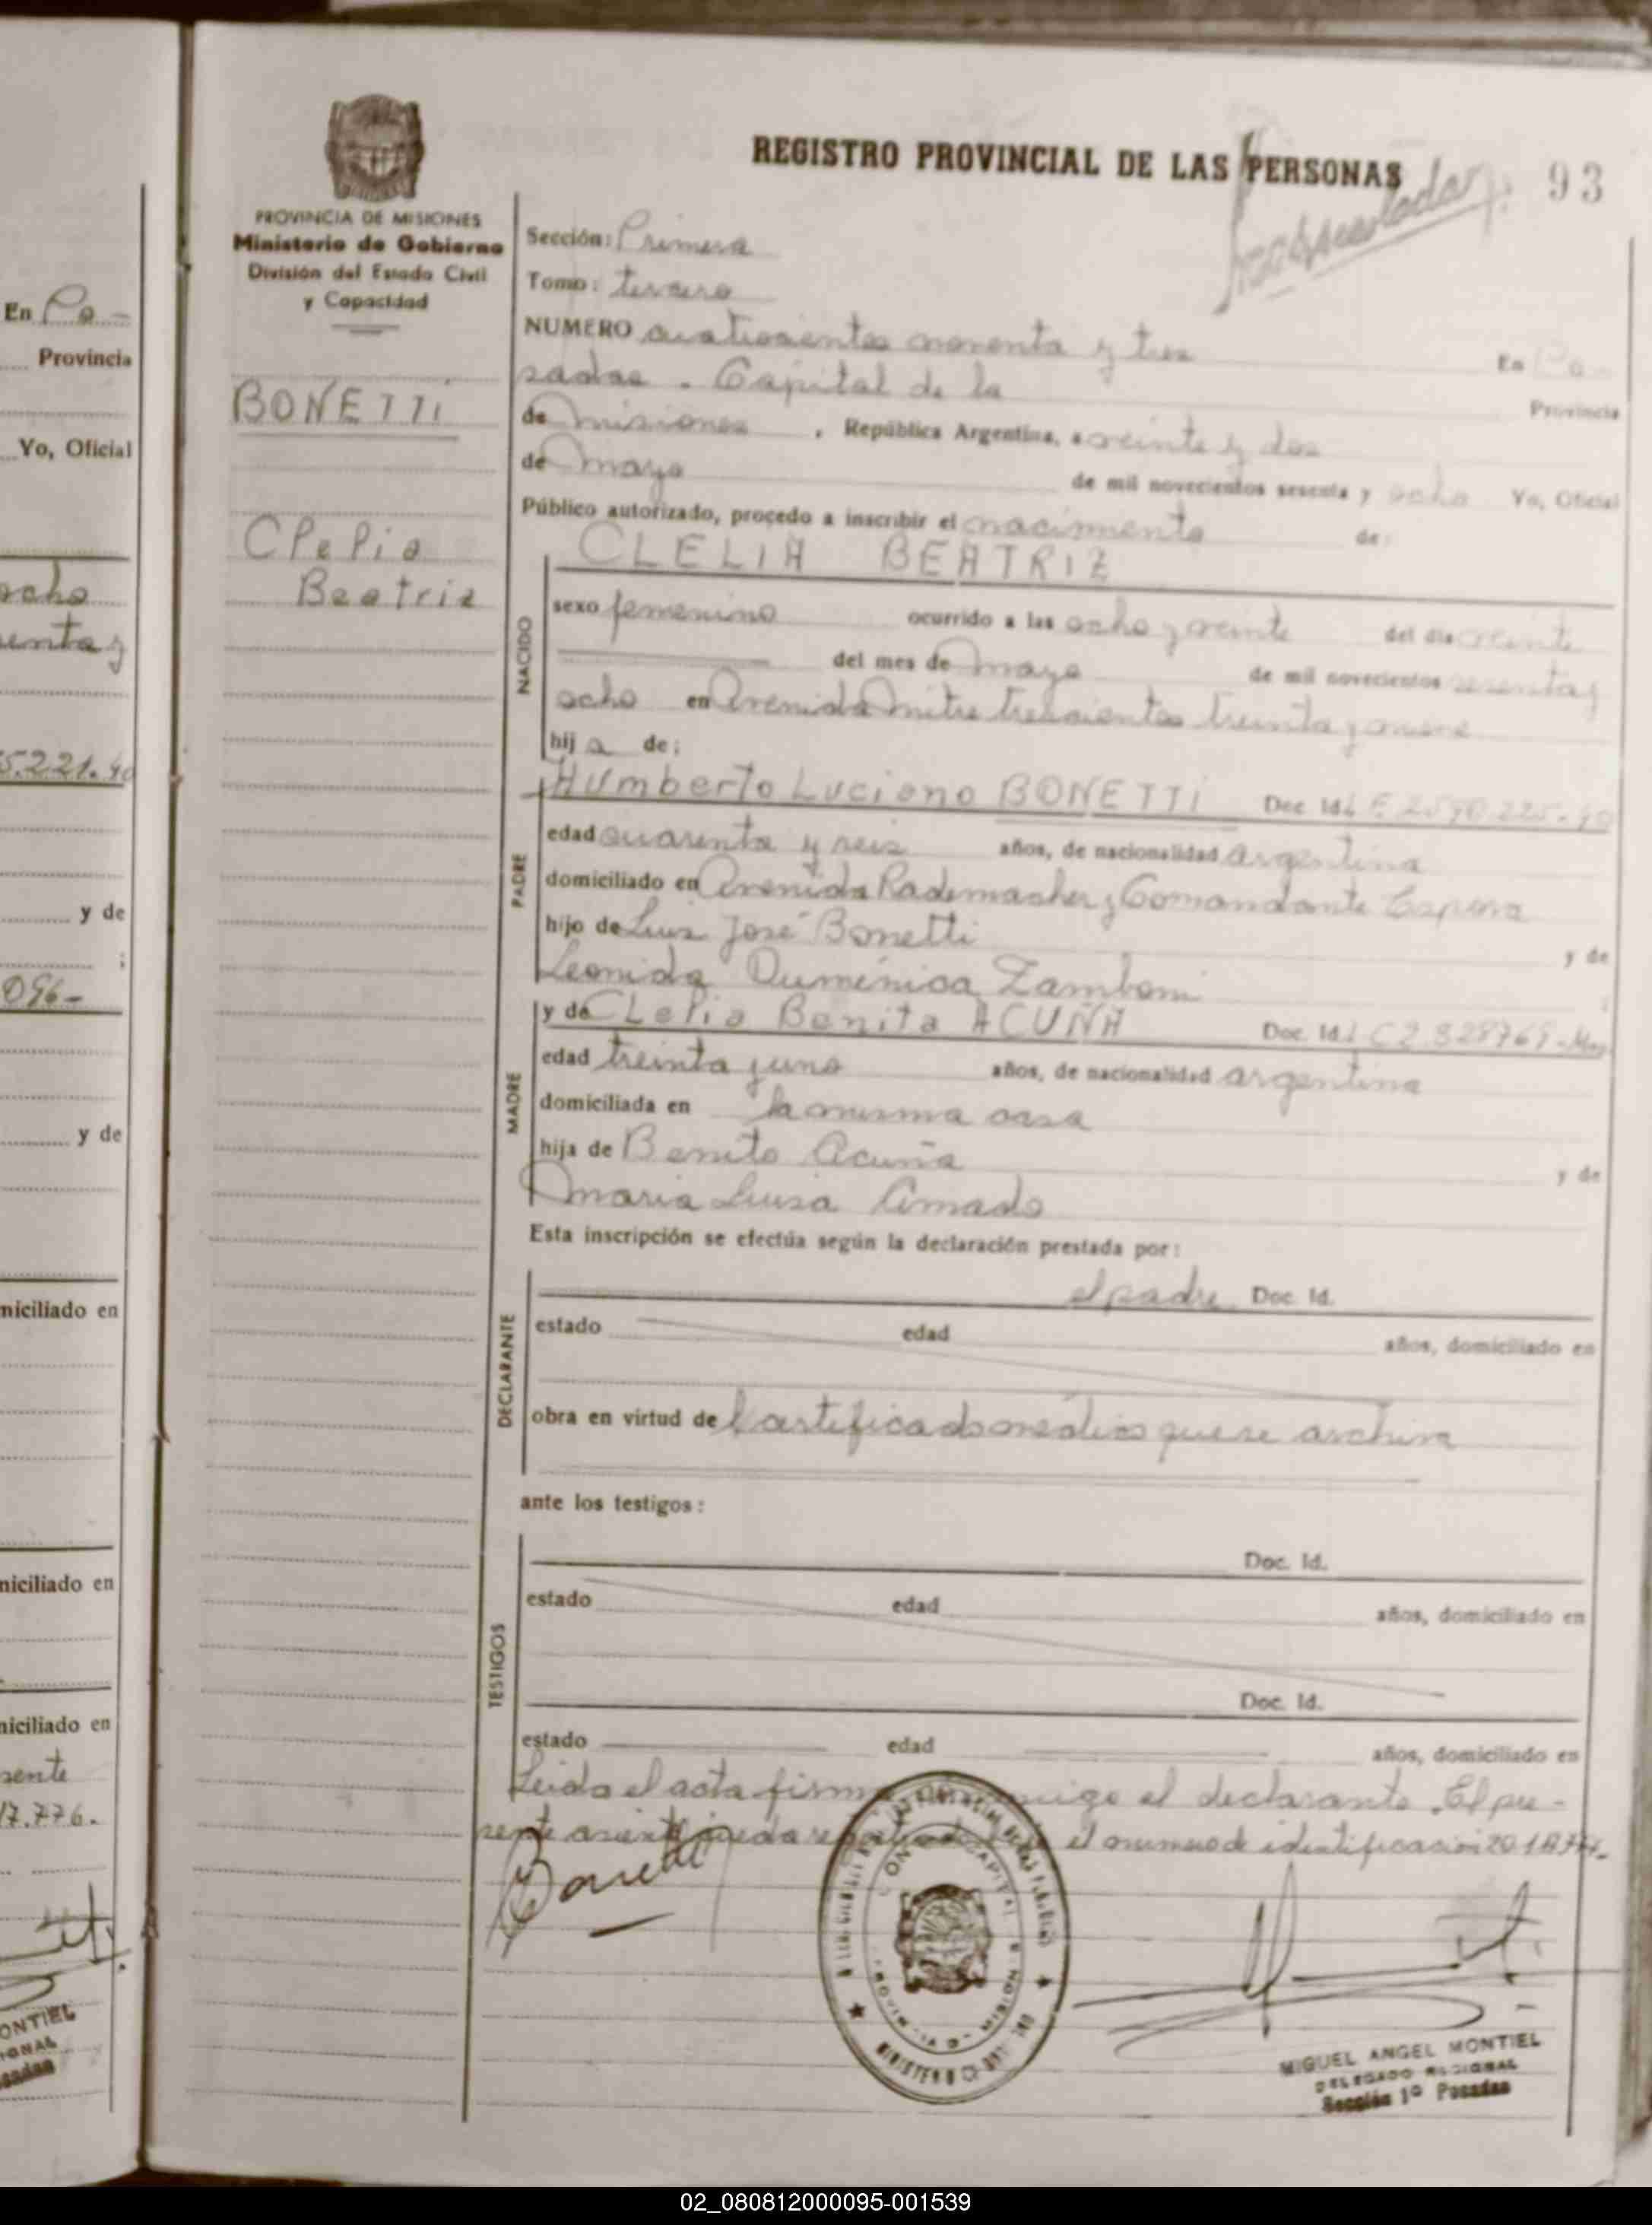 REGISTRO PROVINCIAL DE LAS PERSONAS
93
PROVINCIA DE MISIONES
Ministerio de Gobierno
División del Estado Civil
y Capacidad
Sección: Primera
Tomo: tercero
NUMERO cuatrocientos noventa y tres En Po
sadas. Capital de la Provincia
de Misiones, República Argentina, a veinte y dos
de mayo de mil novecientos sesenta y ocho Yo, Oficial
Público autorizado, procedo a inscribir el nacimiento de:
BONETTI
Clelia
Beatriz
NACIDO
CLELIA BEATRIZ
sexo femenino ocurrido a las ocho y veinte del dia veinte
del mes de mayo de mil novecientos sesenta y
ocho en Avenida Mitre trescientos treinta y nueve
hija de:
PADRE
Humberto Luciano BONETTI Doc. Id.
edad cuarenta y seis años, de nacionalidad argentina
domiciliado en Avenida Rademacher y Comandante Espora
hijo de Luis José Bonetti y de
Leonida Duménica Zamboni
MADRE
y de Clelia Benita ACUÑA Doc. Id. L C 2.828769-
edad treinta y uno años, de nacionalidad argentina
domiciliada en la misma casa
hija de Benito Acuña y de
Maria Luisa Amado
Esta inscripción se efectúa según la declaración prestada por:
DECLARANTE
el padre Doc. Id.
estado edad años, domiciliado en
obra en virtud de certificado médico que se archiva
ante los testigos:
TESTIGOS
Doc. Id.
estado edad años, domiciliado en
Doc. Id.
estado edad años, domiciliado en
Leida el acta el declarante. El pre-
sente asiento queda el numero de identificación
Bonetti
MIGUEL ANGEL MONTIEL
DELEGADO REGIONAL
Sección 1º Posadas
En Po-
Provincia
Yo, Oficial
ocho
senta y
5.221.40
y de
096-
y de
miciliado en
niciliado en
niciliado en
sente
17.776.
ONTIEL
IONAL
sadas
02_080812000095-001539